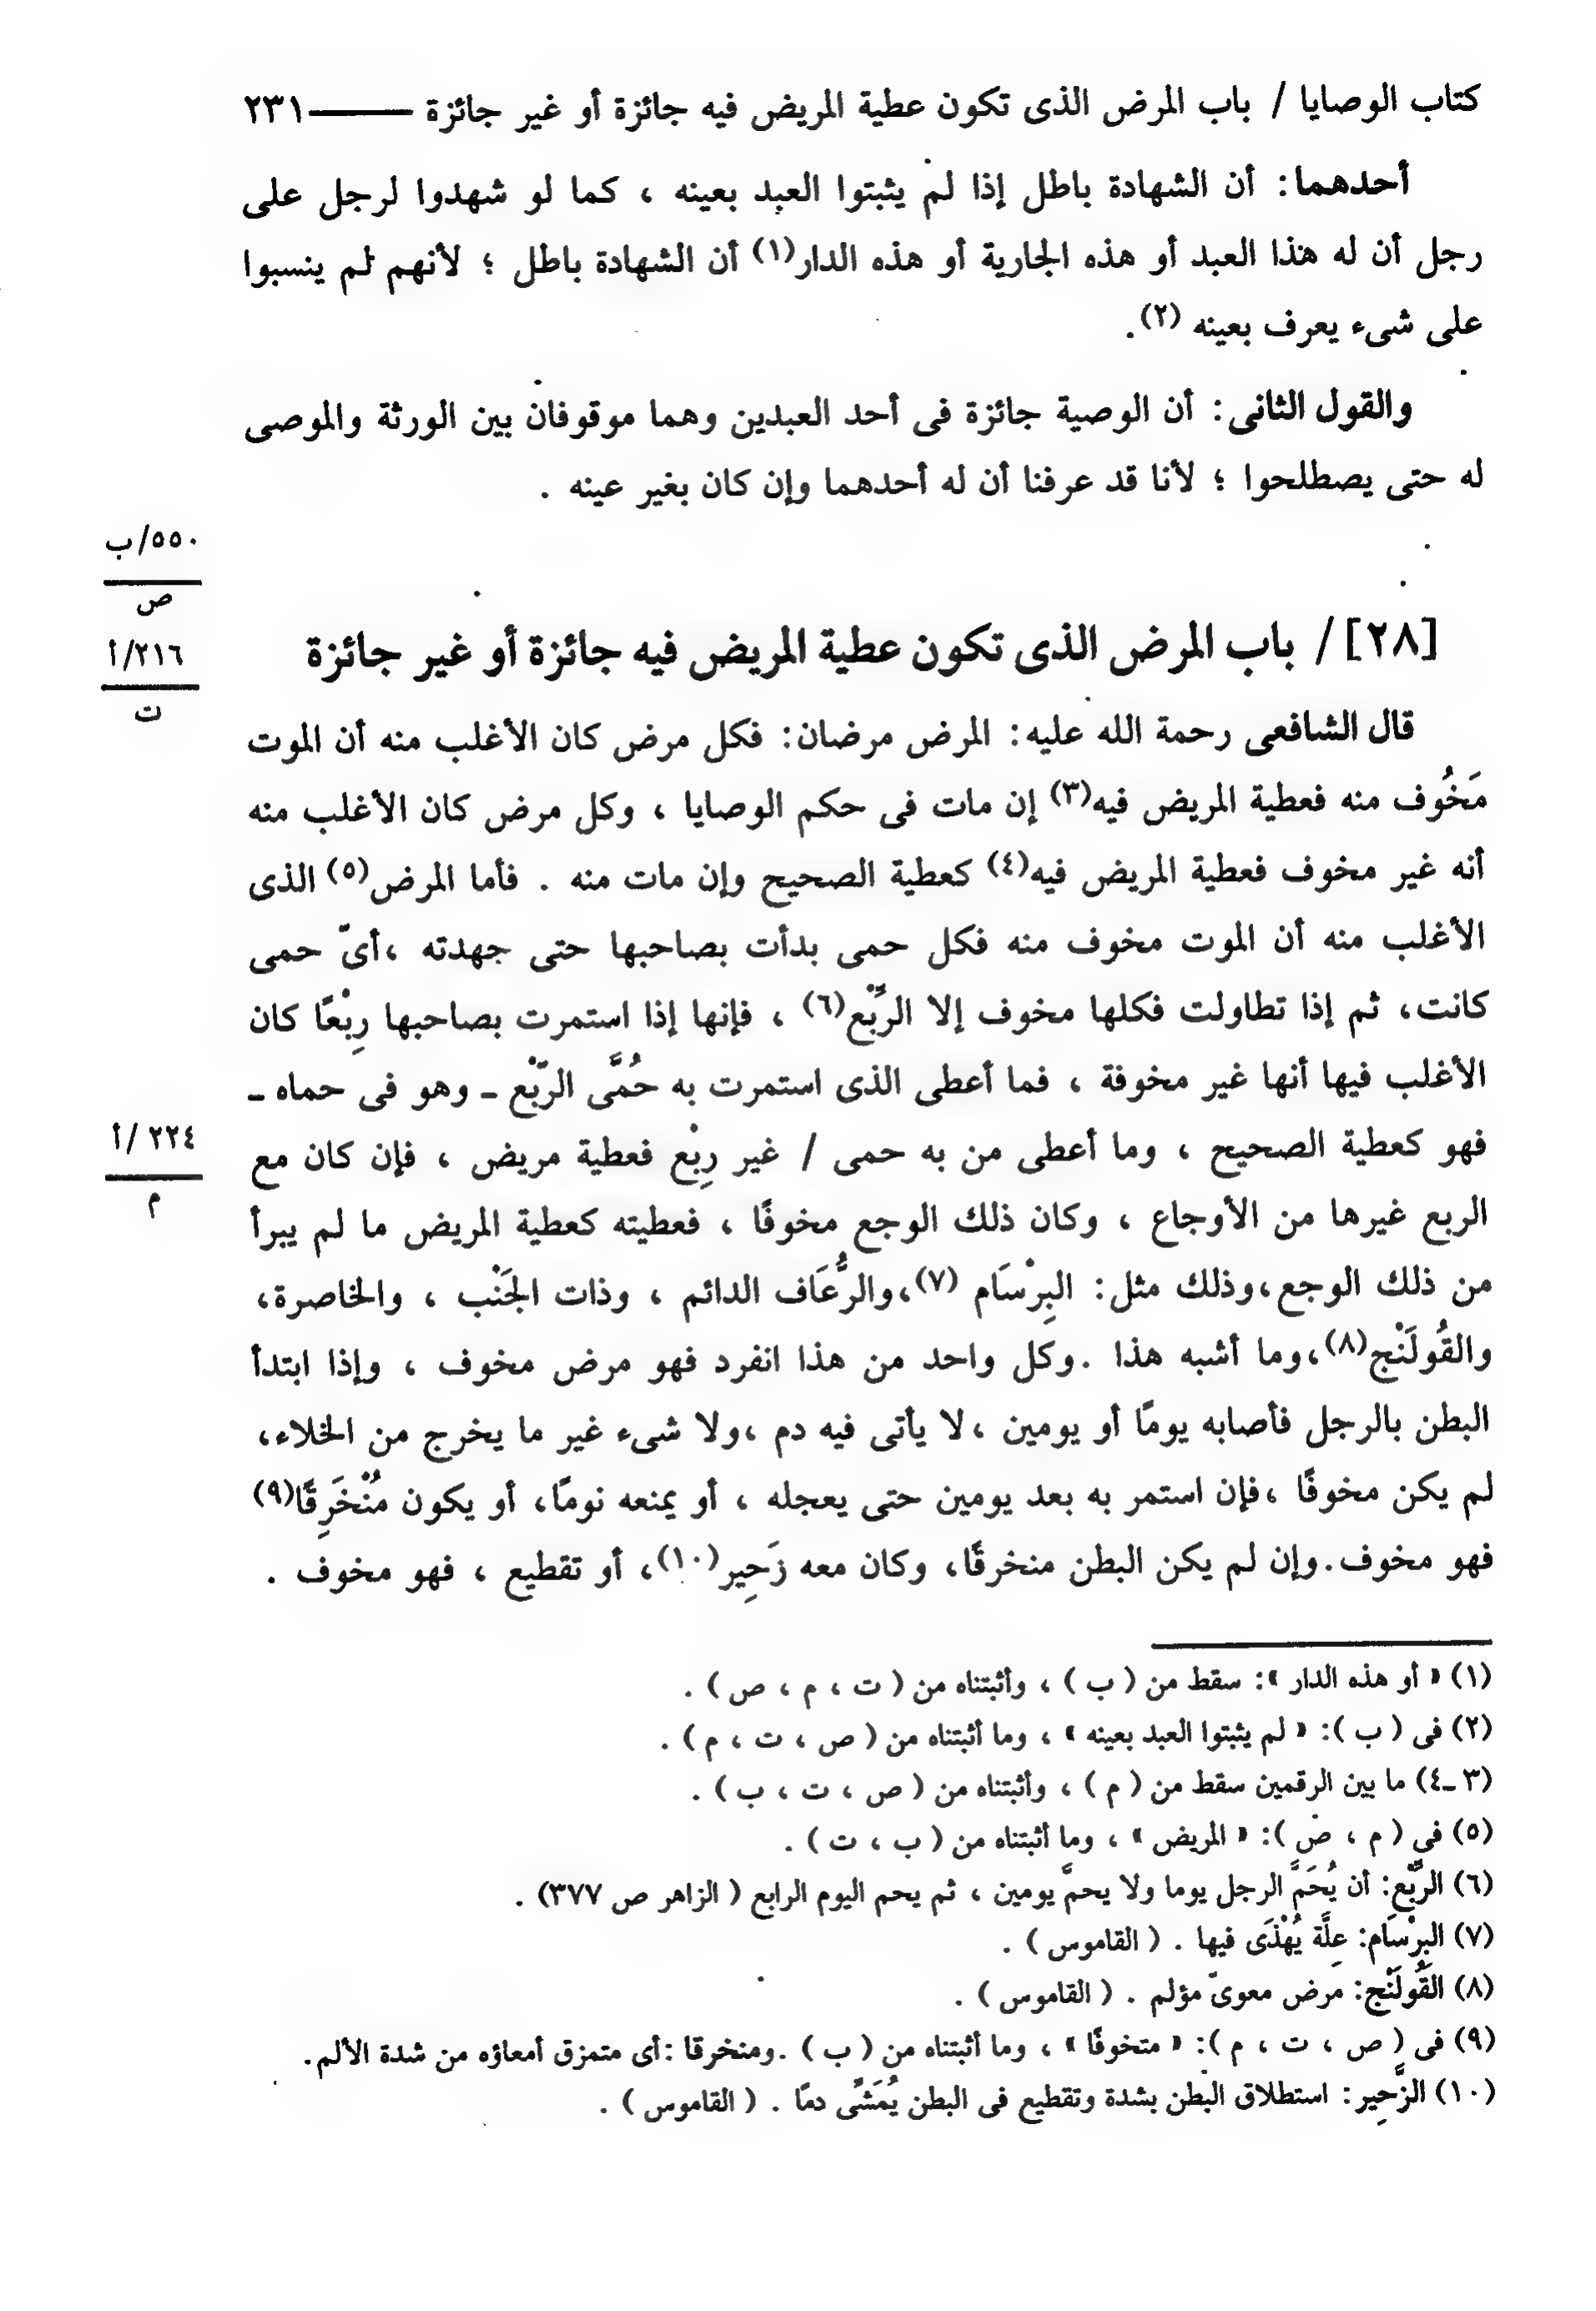 كتاب الوصايا / باب المرض الذى تكون عطية المريض فيه جائزة أو غير جائزة ——— ٢٣١
أحدهما: أن الشهادة باطل إذا لم يثبتوا العبد بعينه ، كما لو شهدوا لرجل على
رجل أن له هذا العبد أو هذه الجارية أو هذه الدار(١) أن الشهادة باطل ؛ لأنهم لم ينسبوا
على شىء يعرف بعينه (٢).
والقول الثانى: أن الوصية جائزة فى أحد العبدين وهما موقوفان بين الورثة والموصى
له حتى يصطلحوا ؛ لأنا قد عرفنا أن له أحدهما وإن كان بغير عينه .
٥٥٠/ب
ص
٢١٦/أ
ت
[٢٨] / باب المرض الذى تكون عطية المريض فيه جائزة أو غير جائزة
قال الشافعى رحمة الله عليه: المرض مرضان: فكل مرض كان الأغلب منه أن الموت
مَخُوف منه فعطية المريض فيه(٣) إن مات فى حكم الوصايا ، وكل مرض كان الأغلب منه
أنه غير مخوف فعطية المريض فيه(٤) كعطية الصحيح وإن مات منه . فأما المرض(٥) الذى
الأغلب منه أن الموت مخوف منه فكل حمى بدأت بصاحبها حتى جهدته ،أىّ حمى
كانت، ثم إذا تطاولت فكلها مخوف إلا الرِّبْع(٦) ، فإنها إذا استمرت بصاحبها رِبْعًا كان
الأغلب فيها أنها غير مخوفة ، فما أعطى الذى استمرت به حُمَّى الرّبْع ـ وهو فى حماه ـ
فهو كعطية الصحيح ، وما أعطى من به حمى / غير رِبْع فعطية مريض ، فإن كان مع
٢٢٤ /أ
م
الربع غيرها من الأوجاع ، وكان ذلك الوجع مخوفًا ، فعطيته كعطية المريض ما لم يبرأ
من ذلك الوجع،وذلك مثل: البِرْسَام (٧)،والرُّعَاف الدائم ، وذات الجَنْب ، والخاصرة،
والقُولَنْج(٨)،وما أشبه هذا .وكل واحد من هذا انفرد فهو مرض مخوف ، وإذا ابتدأ
البطن بالرجل فأصابه يومًا أو يومين ،لا يأتى فيه دم ،ولا شىء غير ما يخرج من الخلاء،
لم يكن مخوفًا ،فإن استمر به بعد يومين حتى يعجله ، أو يمنعه نومًا، أو يكون مُنْخَرِقًا(٩)
فهو مخوف.وإن لم يكن البطن منخرقًا، وكان معه زَحِير(١٠)، أو تقطيع ، فهو مخوف .
(١) « أو هذه الدار »: سقط من ( ب ) ، وأثبتناه من ( ت ، م ، ص ) .
(٢) فى ( ب ): « لم يثبتوا العبد بعينه » ، وما أثبتناه من ( ص ، ت ، م ) .
(٣ ـ٤) ما بين الرقمين سقط من ( م ) ، وأثبتناه من ( ص ، ت ، ب ) .
(٥) فى ( م ، ص ): « المريض » ، وما أثبتناه من ( ب ، ت ) .
(٦) الرِّبْع: أن يُحَمَّ الرجل يوما ولا يحمَّ يومين ، ثم يحم اليوم الرابع ( الزاهر ص ٣٧٧) .
(٧) البِرْسَام: عِلَّة يُهْذَى فيها . ( القاموس ) .
(٨) القُولَنْج: مرض معوىّ مؤلم . ( القاموس ) .
(٩) فى ( ص ، ت ، م ): « متخوفًا » ، وما أثبتناه من ( ب ) .ومنخرقا :أى متمزق أمعاؤه من شدة الألم.
(١٠) الزَّحِير: استطلاق البطن بشدة وتقطيع فى البطن يُمَشِّى دمًا . ( القاموس ) .